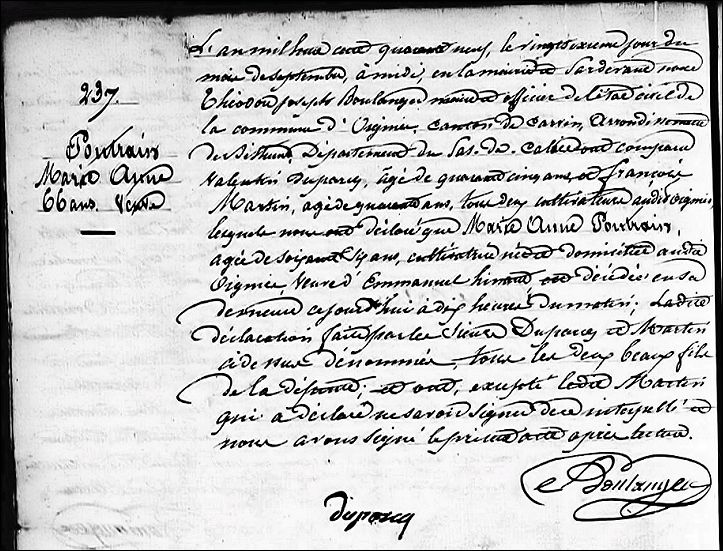 237.
Poutrain
Marie Anne
66 ans. Veuve
L'an mil huit cent quarante neuf, le vingt sixieme jour du
mois de septembre, à midi, en la mairie et pardevant nous
Théodore Joseph Boulanger maire et officier de l'état civil de
la commune d'Oignies, canton de Carvin, arrondissement
de Béthune, Département du Pas-de-Calais ont comparu
Valentin Duparcq, agé de quarante cinq ans, et françois
Martin, agé de quarante ans, tous deux cultivateurs audit Oignies,
lesquels nous ont déclaré que Marie Anne Poutrain,
agée de soixante six ans, cultivatrice née et domiciliée audit
Oignies, Veuve d'Emmanuel est décédée en sa
demeure cejourd'hui à dix heures du matin; Ladite
déclaration faite par les Sieurs Duparcq et Martin
ci dessus dénommés, tous les deux beaux fils
de la défunte; et ont, excepté ledit Martin
qui a déclaré ne savoir signer de ce interpellé et
nous avons signé le présent acte après lecture.
Boulanger
duparcq